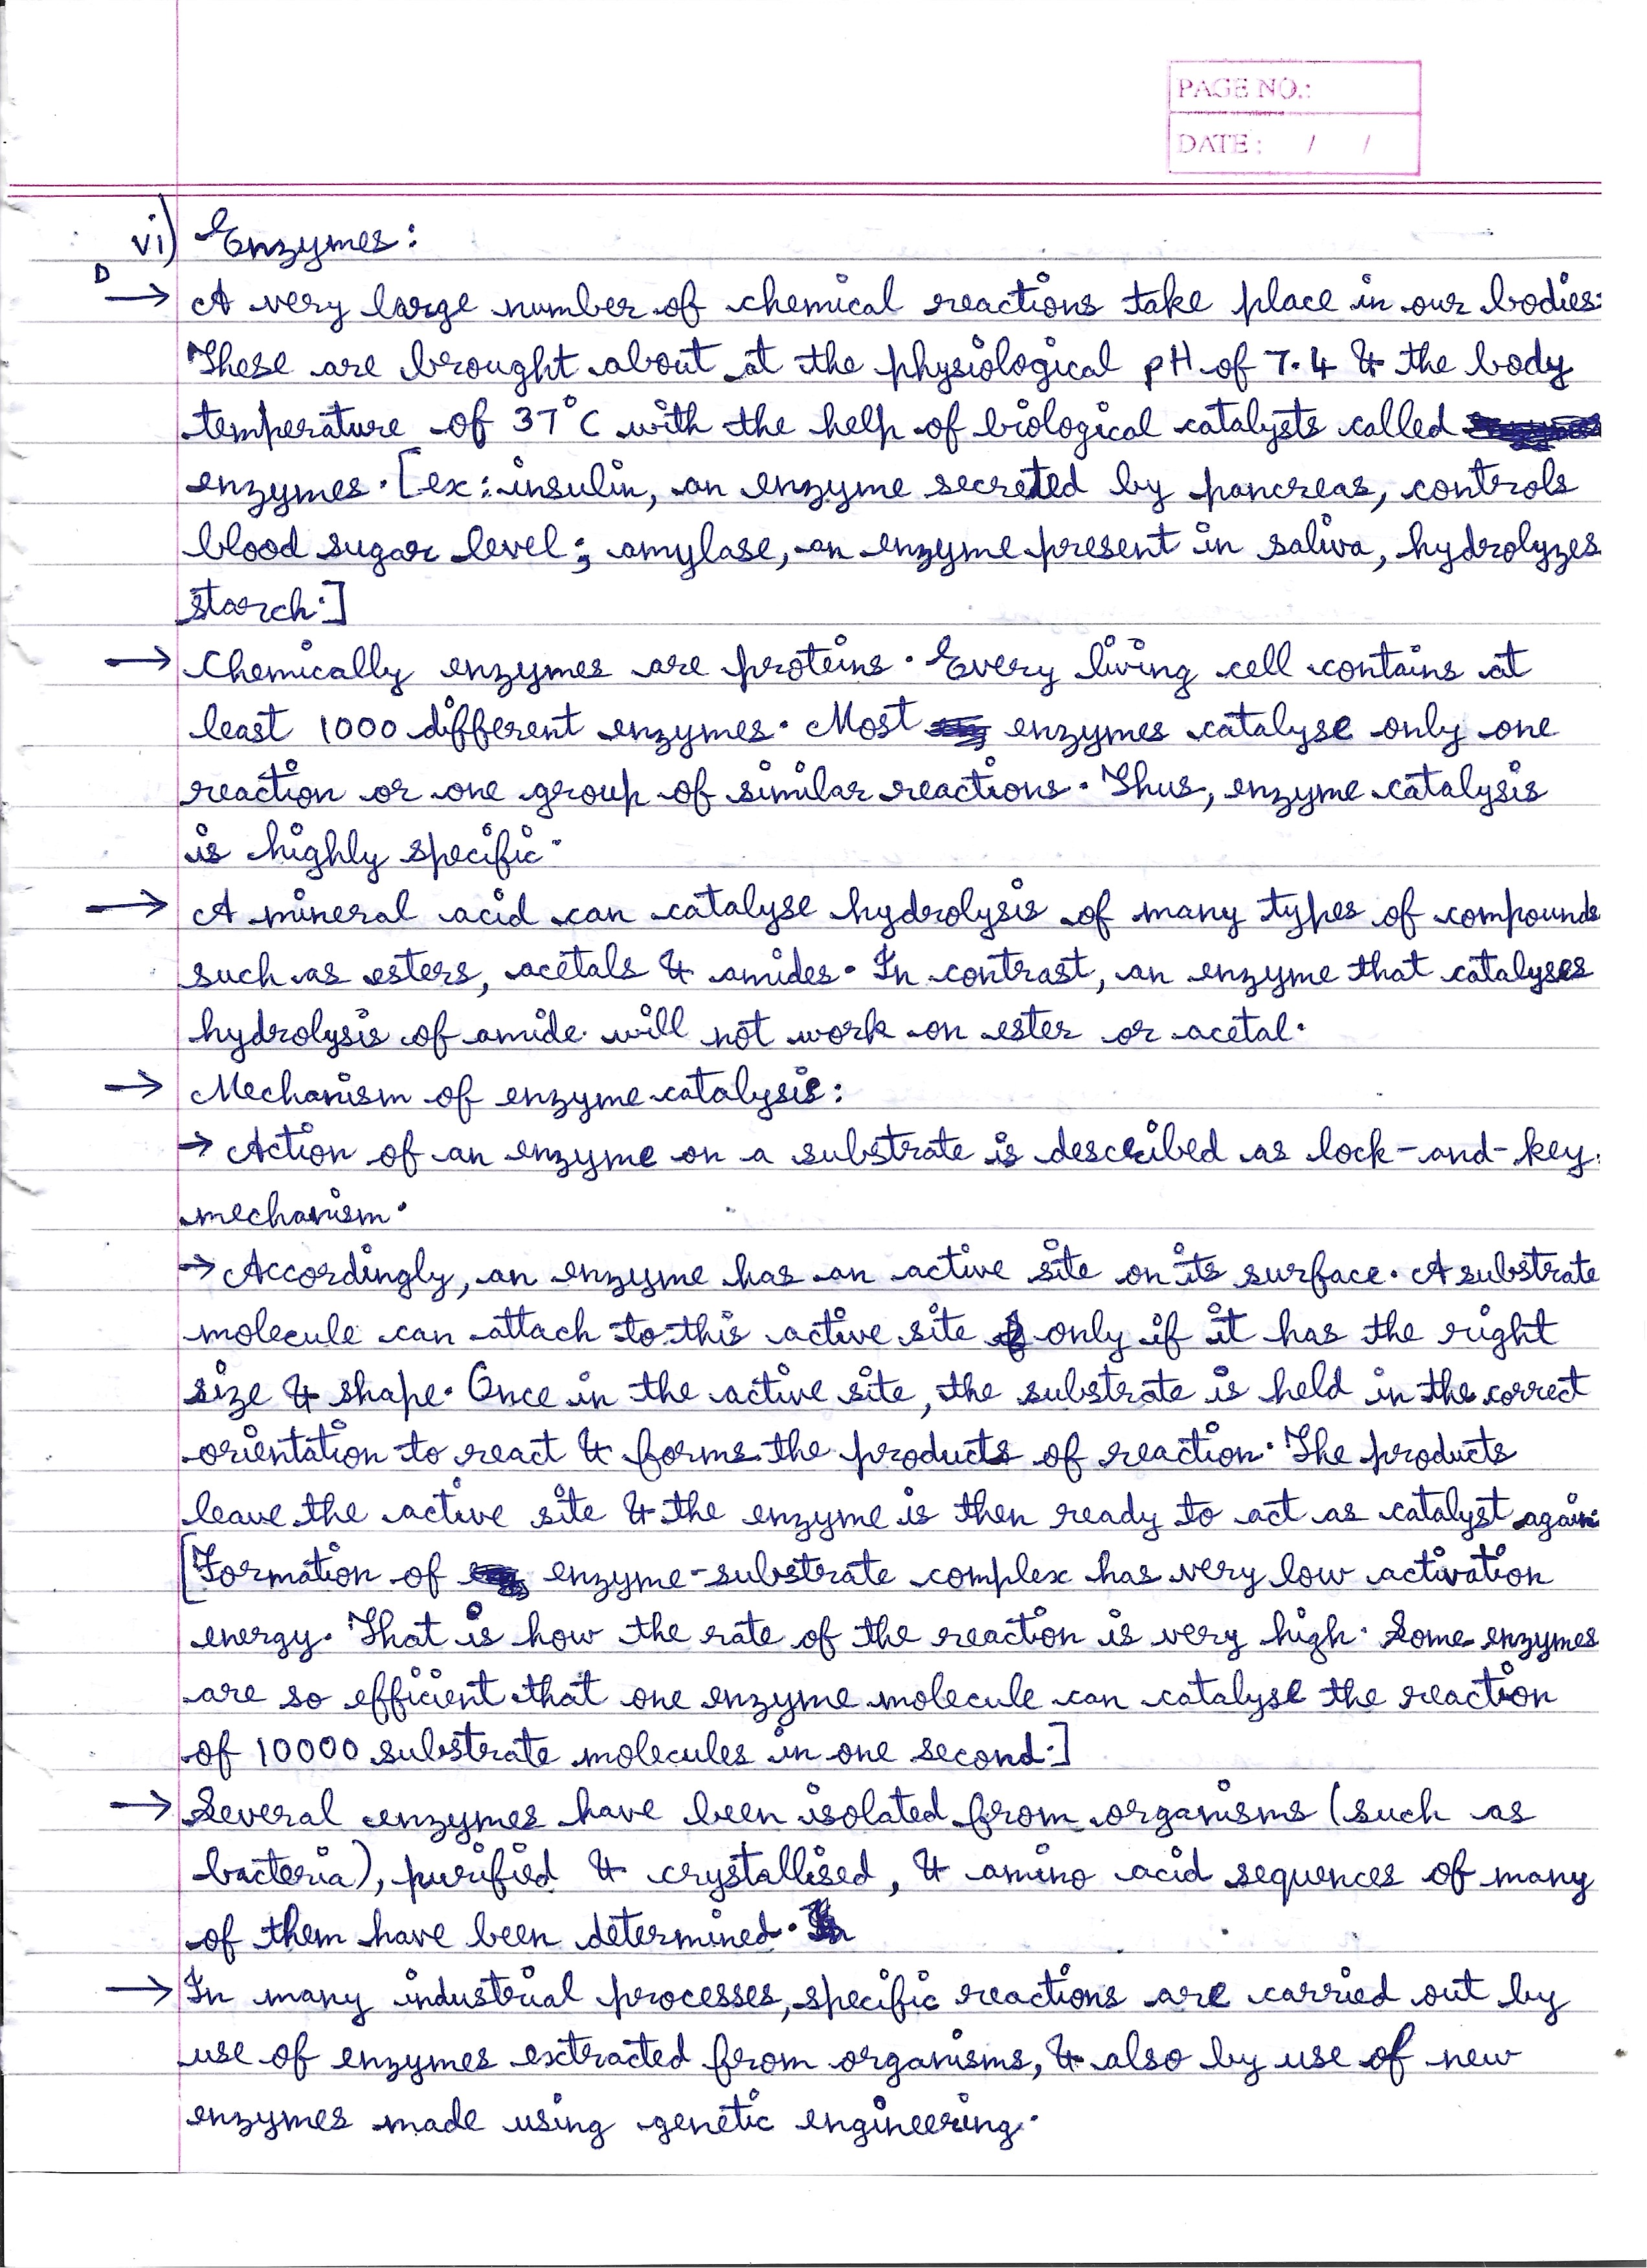 PAGE NO.:
DATE: / /
vi) Enzymes:
D
→ A very large number of chemical reactions take place in our bodies.
These are brought about at the physiological pH of 7.4 & the body
temperature of 37°C with the help of biological catalysts called
enzymes. [ex: insulin, an enzyme secreted by pancreas, controls
blood sugar level; amylase, an enzyme present in saliva, hydrolyzes
starch.]
→ Chemically enzymes are proteins. Every living cell contains at
least 1000 different enzymes. Most enzymes catalyse only one
reaction or one group of similar reactions. Thus, enzyme catalysis
is highly specific.
→ A mineral acid can catalyse hydrolysis of many types of compounds
such as esters, acetals & amides. In contrast, an enzyme that catalyses
hydrolysis of amide will not work on ester or acetal.
→ Mechanism of enzyme catalysis:
→ Action of an enzyme on a substrate is described as lock-and-key
mechanism.
→ Accordingly, an enzyme has an active site on its surface. A substrate
molecule can attach to this active site only if it has the right
size & shape. Once in the active site, the substrate is held in the correct
orientation to react & forms the products of reaction. The products
leave the active site & the enzyme is then ready to act as catalyst again.
[Formation of enzyme-substrate complex has very low activation
energy. That is how the rate of the reaction is very high. Some enzymes
are so efficient that one enzyme molecule can catalyse the reaction
of 10000 substrate molecules in one second.]
→ Several enzymes have been isolated from organisms (such as
bacteria), purified & crystallised, & amino acid sequences of many
of them have been determined.
→ In many industrial processes, specific reactions are carried out by
use of enzymes extracted from organisms, & also by use of new
enzymes made using genetic engineering.